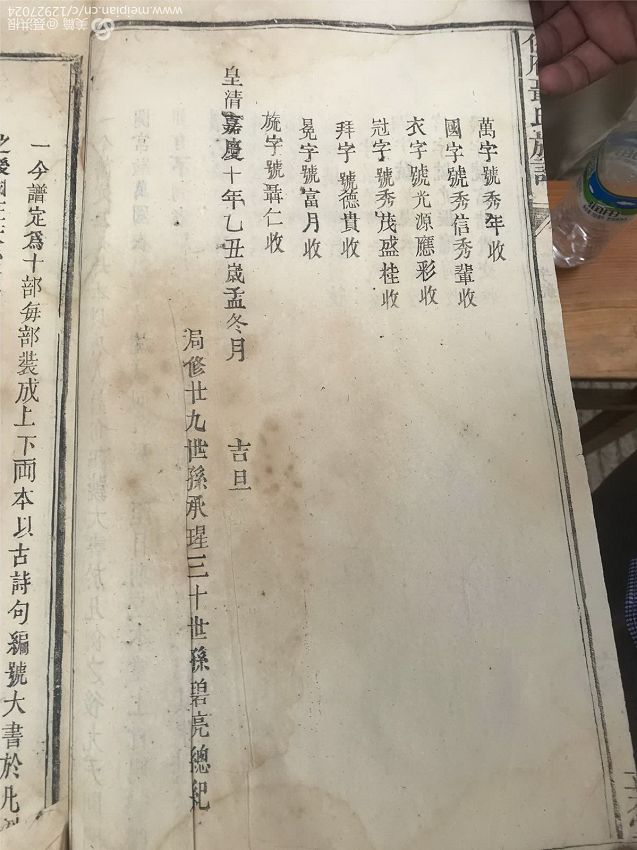 萬字號秀年收
國字號秀信秀輩收
衣字號光源應彩收
冠字號秀茂盛桂收
拜字號德貴收
冕字號富月收
旒字號聶仁收
皇清嘉慶十年乙丑歲孟冬月 吉旦
局修廿九世孫承瑆三十世孫碧亮總紀
一今譜定爲十部每部裝成上下兩本以古詩句編號大書於凡
美篇@聂洪根
www.meipian.cn/c/12927024